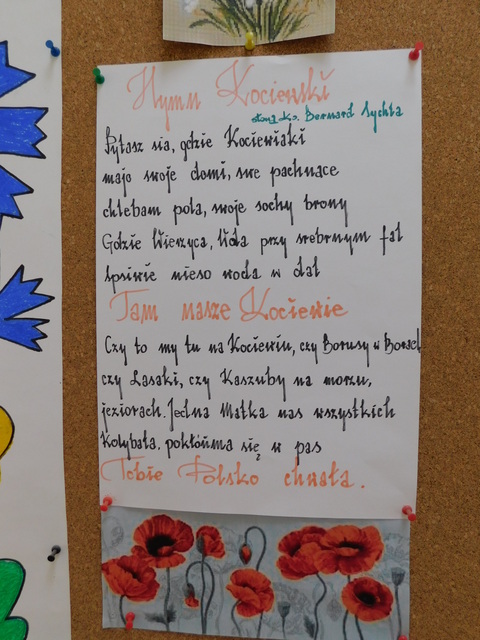 Hymn Kociewski
słowa ks. Bernard Sychta
Pytasz sia, gdzie Kociewiaki
majo swoje domi, swe pachnące
chlebam pola, swoje sochy brony
Gdzie Wierzyca, Wda przy srebrnym fal
śpiwie nieso woda w dal
Tam nasze Kociewie
Czy to my tu na Kociewiu, czy Borusy w Borach
czy Lasaki, czy Kaszuby na morzu,
jeziorach. Jedna Matka nas wszystkich
Kołybała. pokłóńma się w pas
Tobie Polsko chwała.